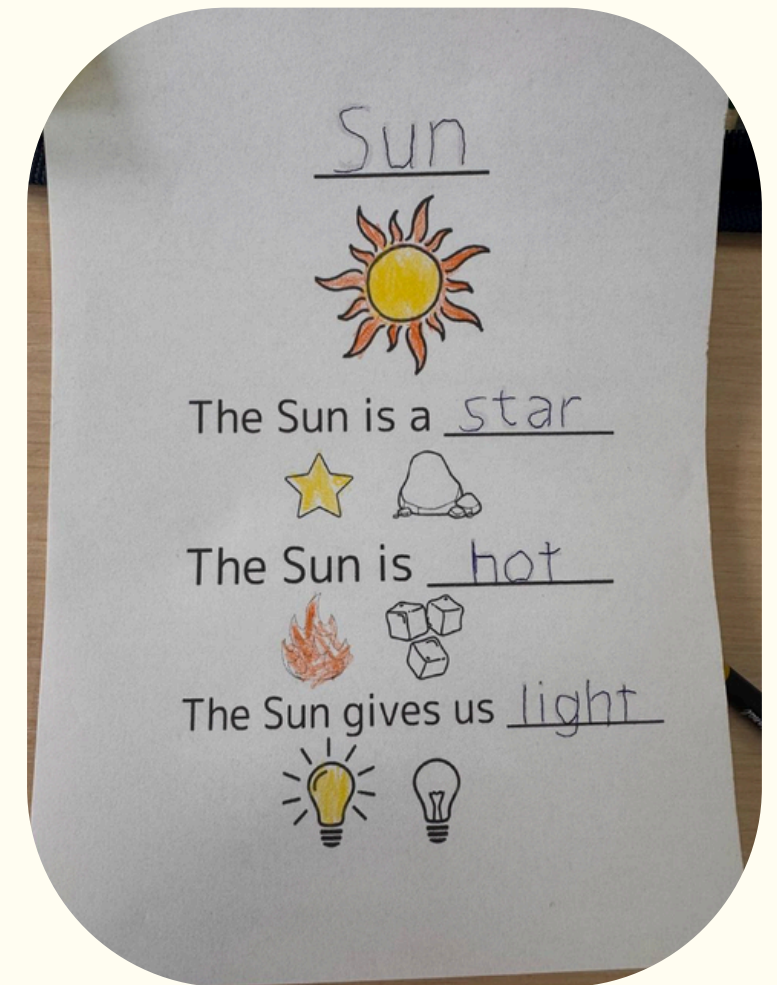 Sun
The Sun is a star
The Sun is hot
The Sun gives us light